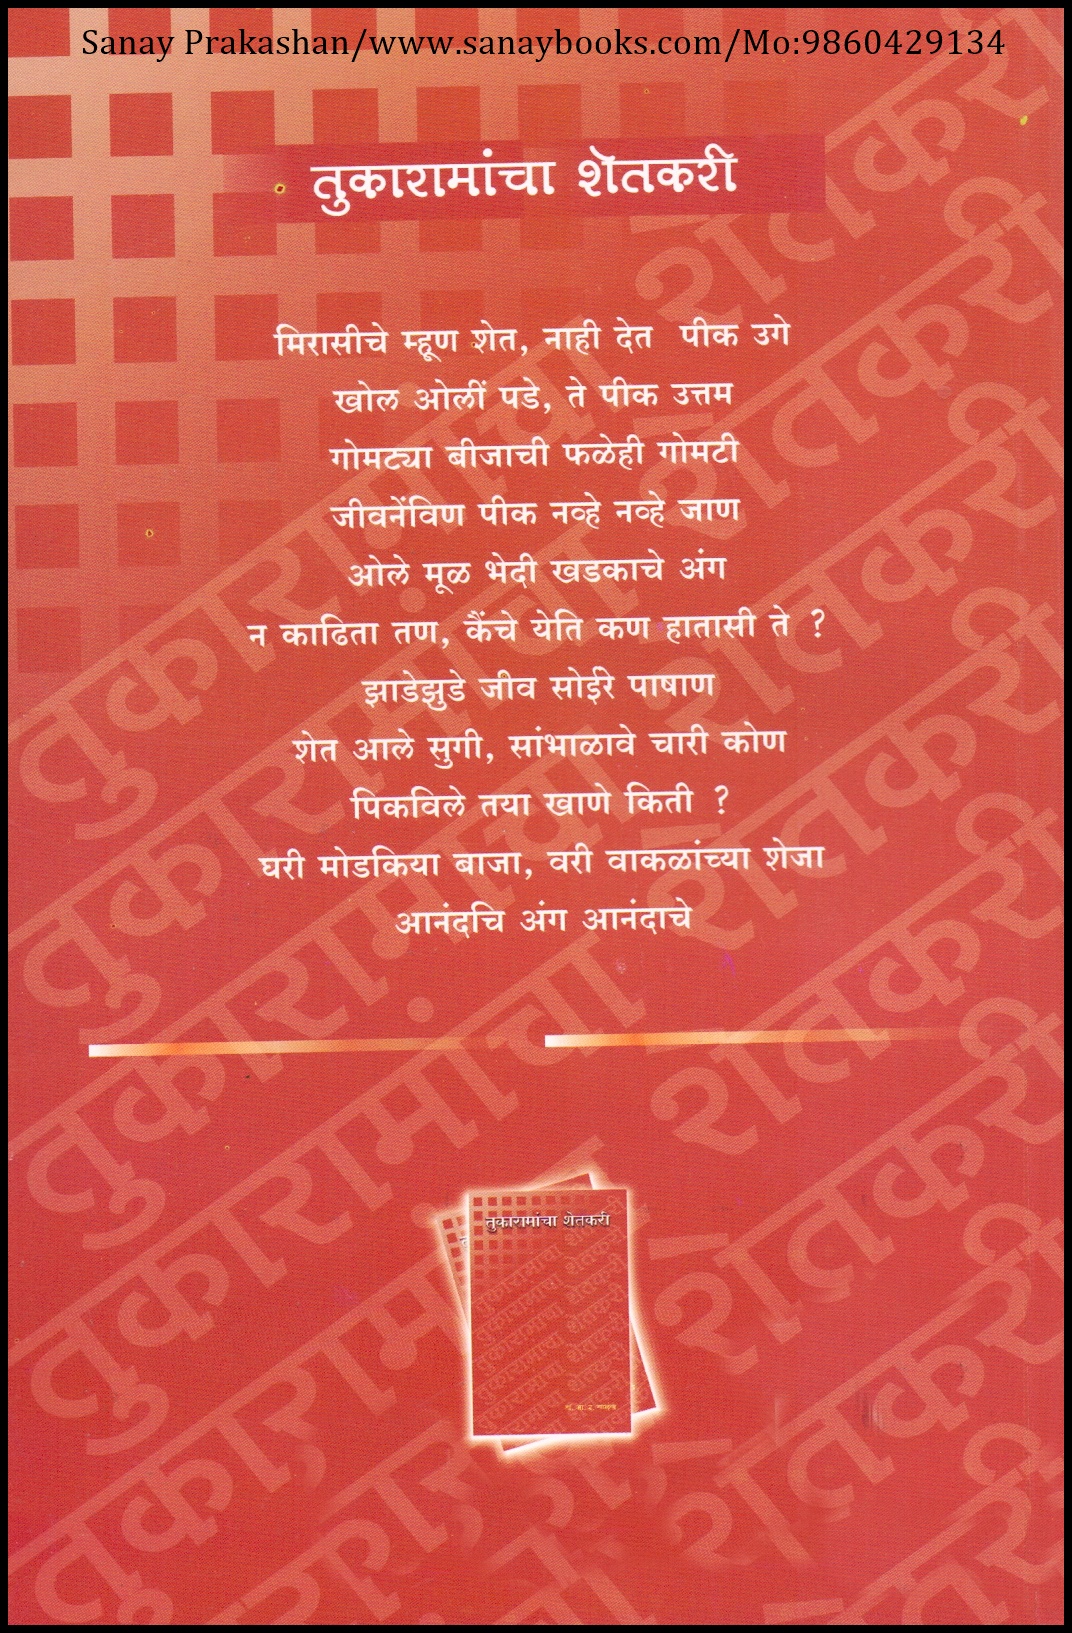 Sanay Prakashan/www.sanaybooks.com/Mo:9860429134
तुकारामांचा शेतकरी
मिरासीचे म्हूण शेत, नाही देत पीक उगे
खोल ओलीं पडे, ते पीक उत्तम
गोमट्या बीजाची फळेही गोमटी
जीवनेंविण पीक नव्हे नव्हे जाण
ओले मूळ भेदी खडकाचे अंग
न काढिता तण, कैंचे येति कण हातासी ते ?
झाडेझुडे जीव सोईरे पाषाण
शेत आले सुगी, सांभाळावे चारी कोण
पिकविले तया खाणे किती ?
घरी मोडकिया बाजा, वरी वाकळांच्या शेजा
आनंदचि अंग आनंदाचे
तुकारामांचा शेतकरी